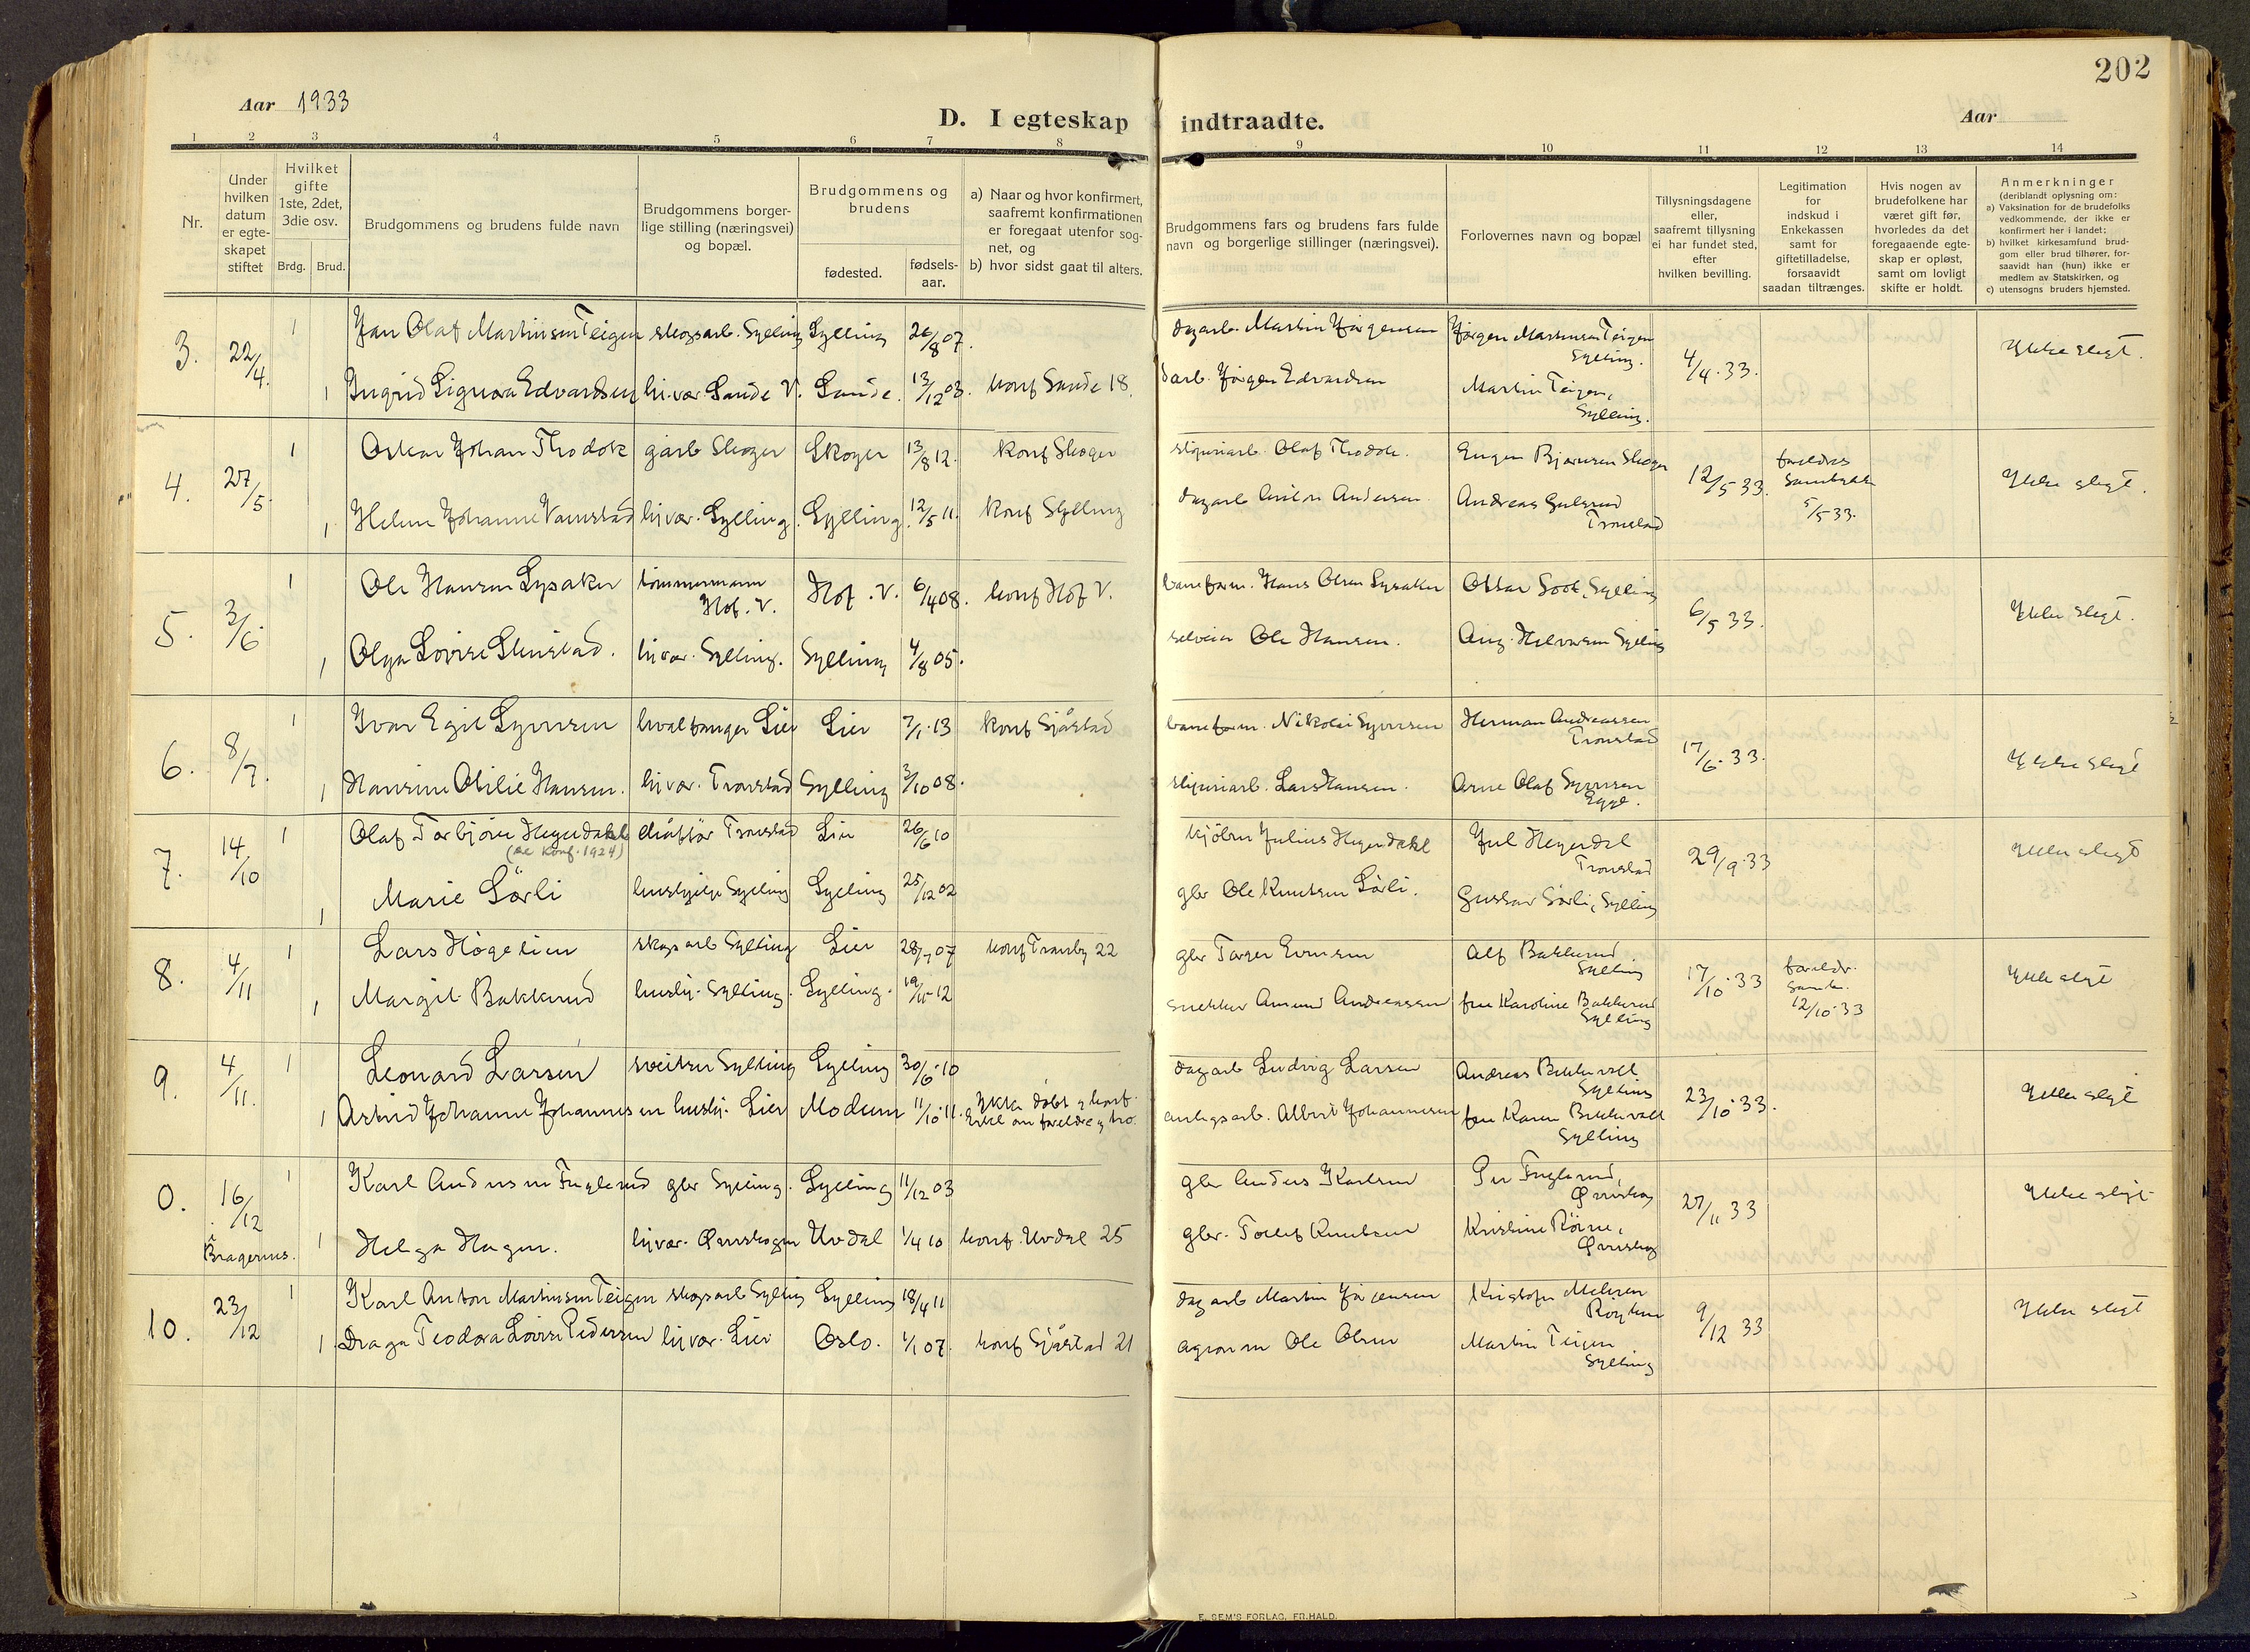 202
Aar 1933
Aar
D. I egteskap indtraadte.
1 2 3 4 5 6 7 8 9 10 11 12 13 14
Nr.
Under hvilken datum er egteskapet stiftet
Hvilket gifte 1ste, 2det, 3die osv.
Brdg. Brud.
Brudgommens og brudens fulde navn
Brudgommens borgerlige stilling (næringsvei) og bopæl.
Brudgommens og brudens
fødested. fødselsaar.
a) Naar og hvor konfirmert, saafremt konfirmationen er foregaat utenfor sognet, og
b) hvor sidst gaat til alters.
Brudgommens fars og brudens fars fulde navn og borgerlige stillinger (næringsvei).
Forlovernes navn og bopæl
Tillysningsdagene eller, saafremt tillysning ei har fundet sted, efter hvilken bevilling.
Legitimation for indskud i Enkekassen samt for giftetilladelse, forsaavidt saadan tiltrænges.
Hvis nogen av brudefolkene har været gift før, hvorledes da det foregaaende egteskap er opløst, samt om lovligt skifte er holdt.
Anmerkninger (deriblandt oplysning om:
a) Vaksination for de brudefolks vedkommende, der ikke er konfirmert her i landet;
b) hvilket kirkesamfund brudgom eller brud tilhører, forsaavidt han (hun) ikke er medlem av Statskirken, og
c) utensogns bruders hjemsted.
3. 22/4. 1 Jan Olaf Martinsen Teigen skogsarb. Sylling Sylling 26/8 07. dagarb. Martin Jørgensen Jørgen Martinsen Teigen Sylling. 4/4.33. Ikke slegt.
1 Ingrid Signora Edvardsen hj.vær. Sande V. Sande. 13/12 03. konf Sande 18. darb. Jørgen Edvardsen Martin Teigen, Sylling.
4. 27/5. 1 Oskar Johan Thodok garb Skoger Skoger 13/8 12. konf Skoger sliperiarb. Olaf Thodok. Eugen Bjørnsen Skoger 12/5 33. foreldres samtykke 5/5 33. Ikke slegt.
1 Helene Johanne Vamstad hj.vær. Sylling. Sylling. 12/5 11. konf Sylling dagarb Anton Andersen Andreas Gulsrud Tronstad
5. 3/6. 1 Ole Hansen Lysaker tømmermann Hof. V. Hof. V. 6/4 08. konf Hof V. baneform. Hans Olsen Lysaker Ottar Sook, Sylling 6/5 33. Ikke slegt.
1 Olga Lovise Stenstad. hj.vær. Sylling. Sylling 4/8 05. selveier Ole Hansen. Aug. Halvorsen Sylling
6. 8/7. 1 Ivar Egil Syversen hvalfanger Lier Lier 7/1.13 konf Sjåstad baneform. Nikolai Syversen Herman Andreassen Tronstad 17/6.33. Ikke slegt
1 Hansine Otilie Hansen. hj.vær. Tronstad Sylling 3/10 08. sliperiarb. Lars Hansen. Arne Olaf Syversen Egge.
7. 14/10 1 Olaf Torbjörn Heyerdahl (se konf. 1924) chåffør Tronstad Lier 26/6 10 kjøbm Julius Heyerdahl Jul Heyerdal Tronstad 29/9.33 Ikke slegt
1 Marie Sörli hushjelp Sylling Sylling 25/12 02 gbr Ole Knutsen Sörli. Gustav Sörli, Sylling
8. 4/11 1 Lars Högelien skogsarb Sylling Lier 28/7 07 konf Tranby 22 gbr Torger Evensen Alf Bakkerud Sylling 17/10.33 foreldr. samt. 12/10.33 Ikke slegt
1 Margit Bakkerud hushj. Sylling. Sylling. 19/11.12 snekker Amund Andreassen fru Karoline Bakkerud Sylling
9. 4/11. 1 Leonard Larsen sveitser Sylling Sylling 30/6.10 dagarb Ludvig Larsen Andreas Bakkevold Sylling 23/10.33. Ikke slegt
1 Astrid Johanne Johannesen hushj. Lier Modum 11/10.11. Ikke döbt og konf. anlegsarb. Albert Johannesen fru Karen Bakkevold Sylling
0. 16/12 i Bragernes. 1 Karl Andersen Fuglerud gbr Sylling. Sylling 11/12 03 gbr Anders Karlsen Per Fuglerud, Øverskog 27/11 33 Ikke slegt
1 Helga Hagen. hj.vær. Øverskogen Uvdal 1/4 10 konf. Uvdal 25 gbr. Tollef Knutsen Kristine Röine, Øverskog
10. 23/12 1 Karl Anton Martinsen Teigen skogsarb Sylling Sylling 18/4 11 dagarb Martin Jörgensen Kristofer Mehren Royken 9/12 33 Ikke slegt
1 Draga Teodora Lovise Pedersen hj.vær. Lier Oslo. 1/1 07. konf Sjåstad 21 agronom Ole Olsen Martin Teigen Sylling
E. SEM'S FORLAG, FR.HALD.